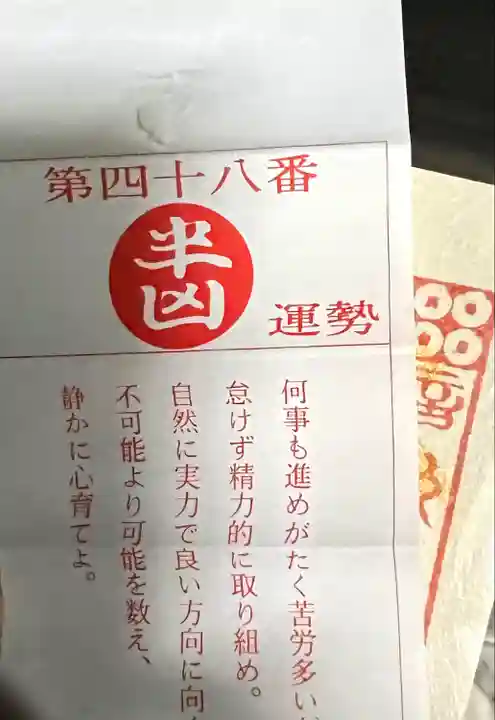 第四十八番
半凶
運勢
何事も進めがたく苦労多い
怠けず精力的に取り組め。
自然に実力で良い方向に向
不可能より可能を数え、
静かに心育てよ。